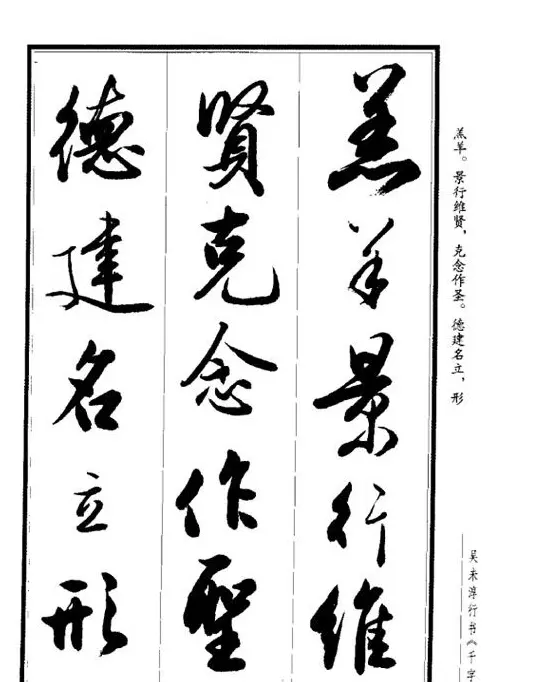 羔羊景行維
賢克念作聖
德建名立形
羔羊。景行维贤，克念作圣。德建名立，形
吴未淳行书《千字